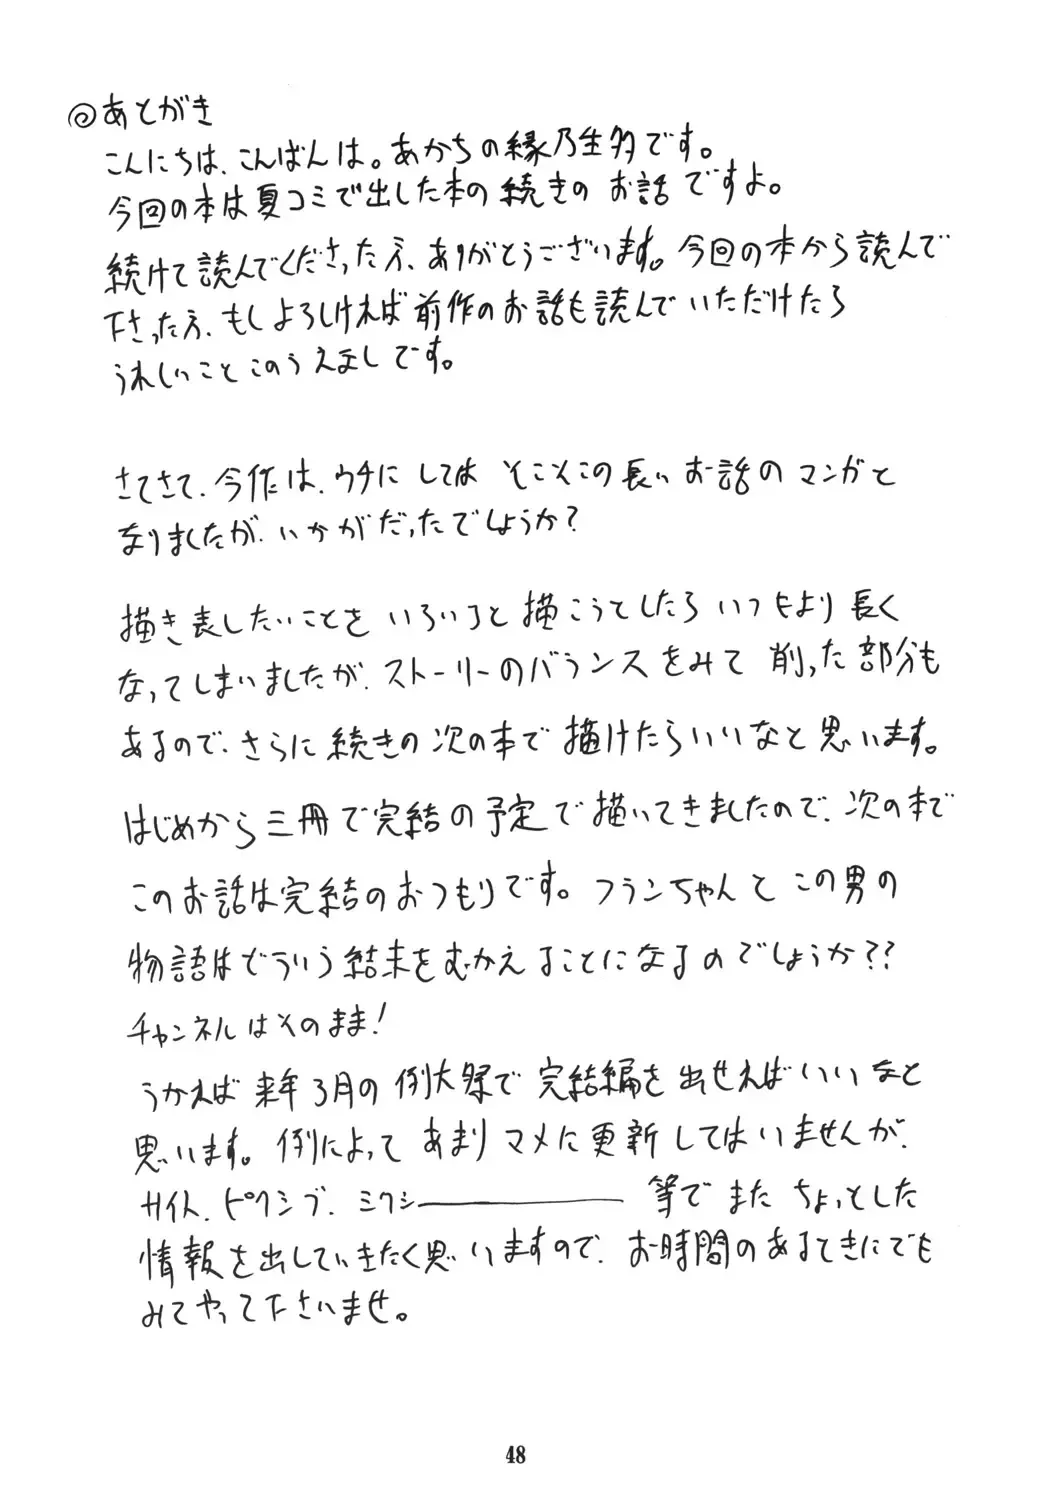 ◎あとがき
こんにちは、こんばんは。あかちの縁乃生多です。
今回の本は夏コミで出した本の続きのお話ですよ。
続けて読んでくださった方、ありがとうございます。今回の本から読んで
下さった方、もしよろしければ前作のお話も読んでいただけたら
うれしいことこのうえましです。
さてさて、今作は、ウチにしてはそこそこの長いお話のマンガと
なりましたが、いかがだったでしょうか?
描き表したいことをいろいろと描こうとしたらいつもより長く
なってしまいましたが、ストーリーのバランスをみて削った部分も
あるので、さらに続きの次の本で描けたらいいなと思います。
はじめから三冊で完結の予定で描いてきましたので、次の本で
このお話は完結のおつもりです。フランちゃんとこの男の
物語はどういう結末をむかえることになるのでしょうか??
チャンネルはそのまま!
うかれば来年3月の例大祭で完結編を出せればいいなと
思います。例によってあまりマメに更新してはいませんが、
サイト、ピクシブ、ミクシー等でまたちょっとした
情報を出していきたく思いますので、お時間のあるときにでも
みてやって下さいませ。
48